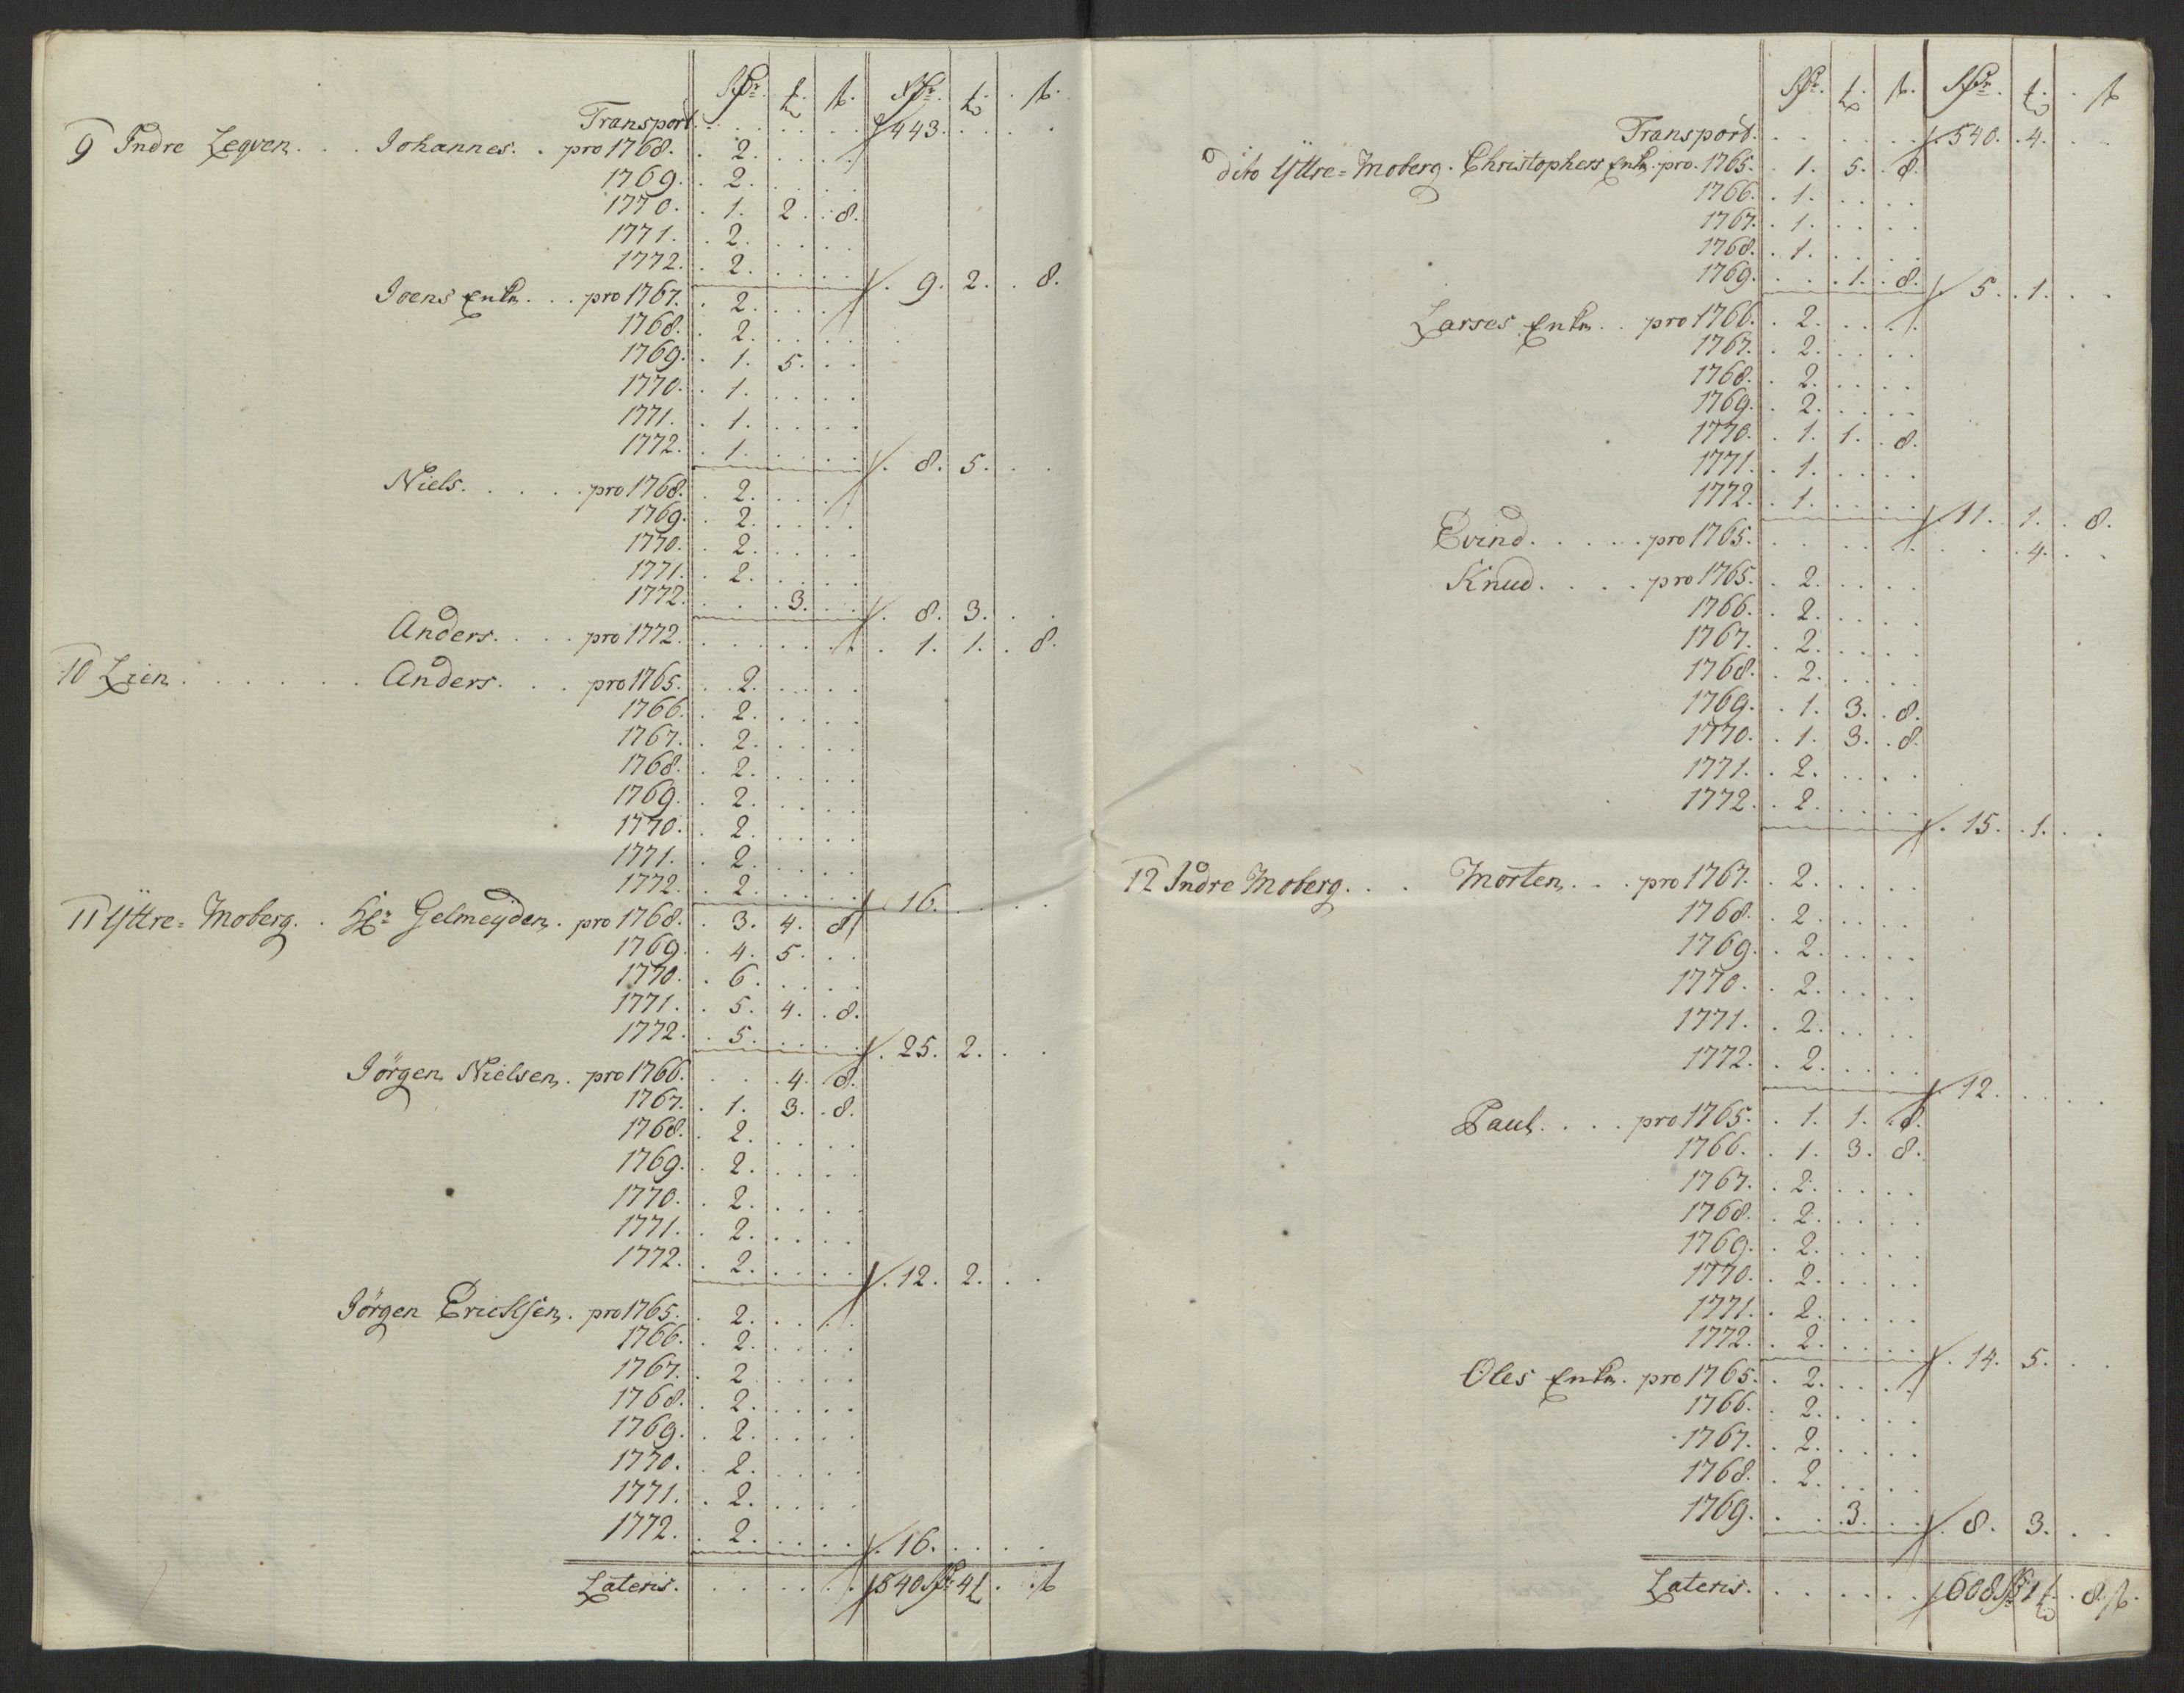 Rdr. ℔. ß. Rdr. ℔. ß.
Transport. . . . . . 443. . . .
9 Indre Legven. . . Johannes. . pro 1768. . 2. . . . .
1769. . 2. . . . .
1770. . 1. 2. . 8.
1771. . 2. . . . .
1772. . 2. . . . . 9. 2. . 8.
Joens Enke. . . pro 1767. . 2. . . . .
1768. . 2. . . . .
1769. . 1. 5. . .
1770. . 1. . . . .
1771. . 1. . . . .
1772. . 1. . . . . 8. 5. . .
Niels. . . . . pro 1768. . 2. . . . .
1769. . 2. . . . .
1770. . 2. . . . .
1771. . 2. . . . .
1772. . . . 3. . . 8. 3. . .
Anders. . . . pro 1772. . . . . . . 1. 1. . 8.
10 Lien. . . . . . Anders. . . pro 1765. . 2. . . . .
1766. . 2. . . . .
1767. . 2. . . . .
1768. . 2. . . . .
1769. . 2. . . . .
1770. . 2. . . . .
1771. . 2. . . . .
1772. . 2. . . . . 16. . . .
11 Yttre=Moberg. . Hr Gelmeyden. pro 1768. . 3. 4. 8
1769. . 4. 5. . .
1770. . 6. . . . .
1771. . 5. 4. . 8.
1772. . 5. . . . . 25. 2. . .
Jörgen Nielsen. pro 1766. . . . 4. 8.
1767. . 1. 3. . 8.
1768. . 2. . . . .
1769. . 2. . . . .
1770. . 2. . . . .
1771. . 2. . . . .
1772. . 2. . . . . 12. 2. . .
Jörgen Ericksen. pro 1765. . 2. . . . .
1766. . 2. . . . .
1767. . 2. . . . .
1768. . 2. . . . .
1769. . 2. . . . .
1770. . 2. . . . .
1771. . 2. . . . .
1772. . 2. . . . . 16. . . .
Lateris. . . . . . . 540 Rdr 4 ℔ . . ß
Rdr. ℔. ß. Rdr. ℔. . ß
Transport. . . . . . 540. . 4. . .
dito Yttre=Moberg. Christophers Enke. pro. 1765. . 1. 5. . 8.
1766. . 1. . . . .
1767. . 1. . . . .
1768. . 1. . . . .
1769. . . . 1. . 8. 5. . 1. . .
Larses Enke. . pro 1766. . 2. . . . .
1767. . 2. . . . .
1768. . 2. . . . .
1769. . 2. . . . .
1770. . 1. 1. . 8.
1771. . 1. . . . .
1772. . 1. . . . . 11. 1. . 8.
Evind. . . . . pro 1765. . . . . . . . . 4. . .
Knud. . . . pro 1765. . 2. . . . .
1766. . 2. . . . .
1767. . 2. . . . .
1768. . 2. . . . .
1769. . 1. 3. . 8.
1770. . 1. 3. . 8.
1771. . 2. . . . .
1772. . 2. . . . . 15. . 1. . .
12 Indre Moberg. . . Morten. . . pro 1767. . 2. . . . .
1768. . 2. . . . .
1769. . 2. . . . .
1770. . 2. . . . .
1771. . 2. . . . .
1772. . 2. . . . . 12. . . . .
Paul. . . . pro 1765. . 1. 1. . 8.
1766. . 1. 3. 8.
1767. . 2. . . . .
1768. . 2. . . . .
1769. . 2. . . . .
1770. . 2. . . . .
1771. . 2. . . . .
1772. . 2. . . . . 14. 5. . .
Oles Enke. pro 1765. . 2. . . . .
1766. . 2. . . . .
1767. . 2. . . . .
1768. . 2. . . . .
1769. . . . 3. . . 8. 3. . .
Lateris. . . . . . . 608 Rdr 1 ℔. . 8. ß.